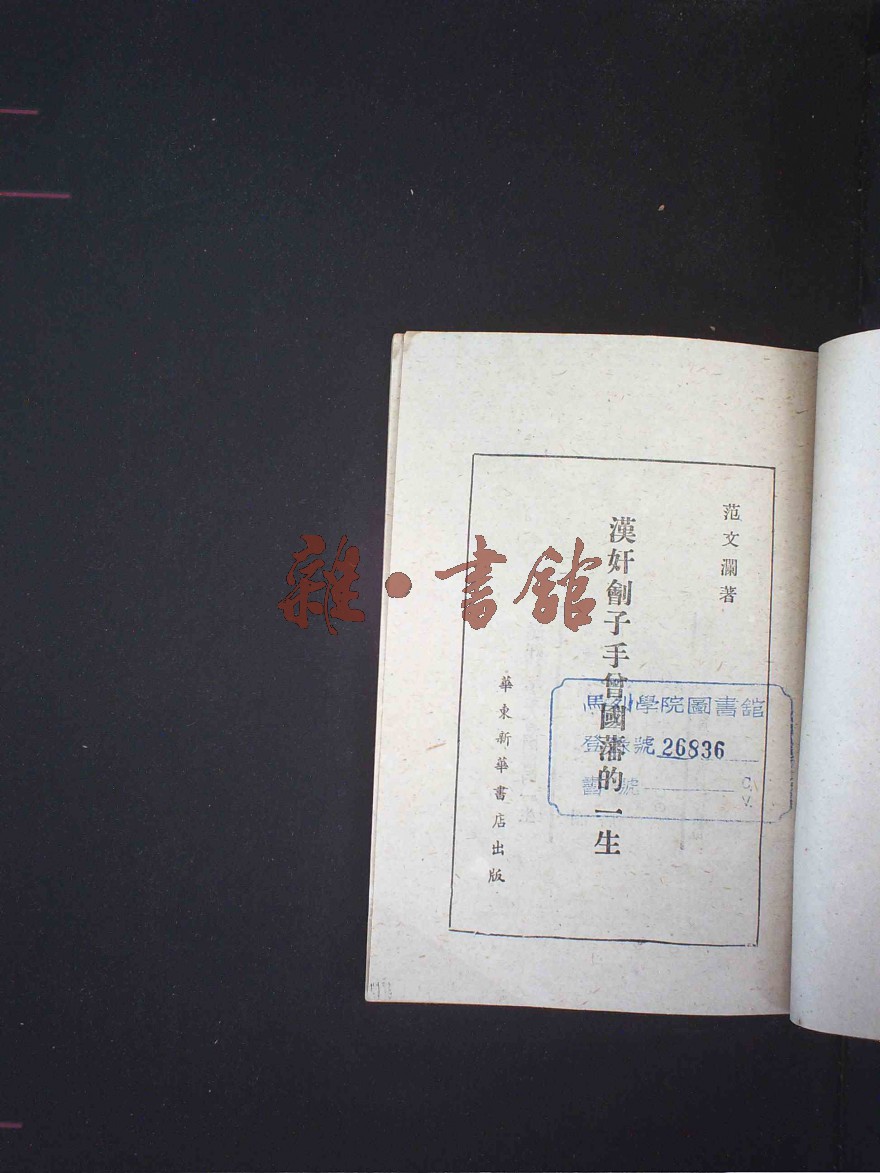 范文瀾著
漢奸劊子手曾國藩的一生
華東新華書店出版
馬列學院圖書館
登錄號 26836
書號 C.
V.
雜·書館